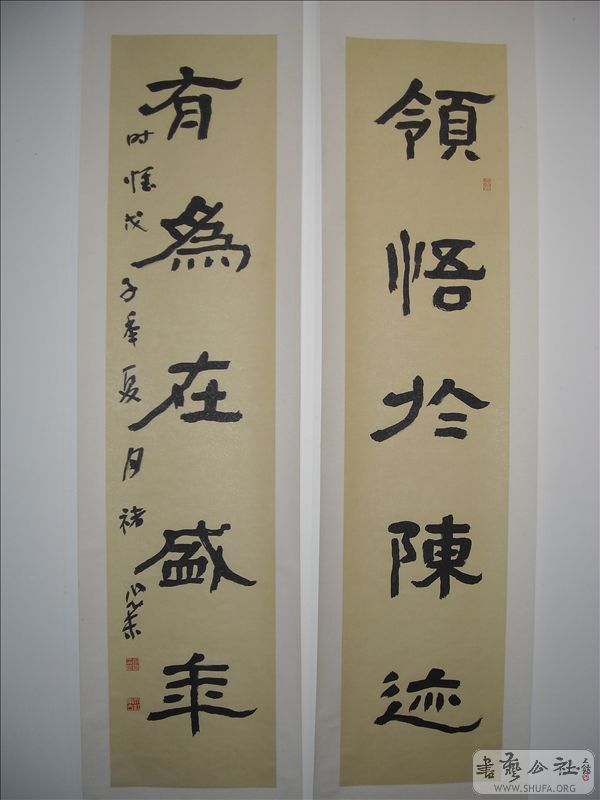 領悟於陳迹
有為在盛年
时惟戊子年夏月褚
書藝公社
WWW.SHUFA.ORG